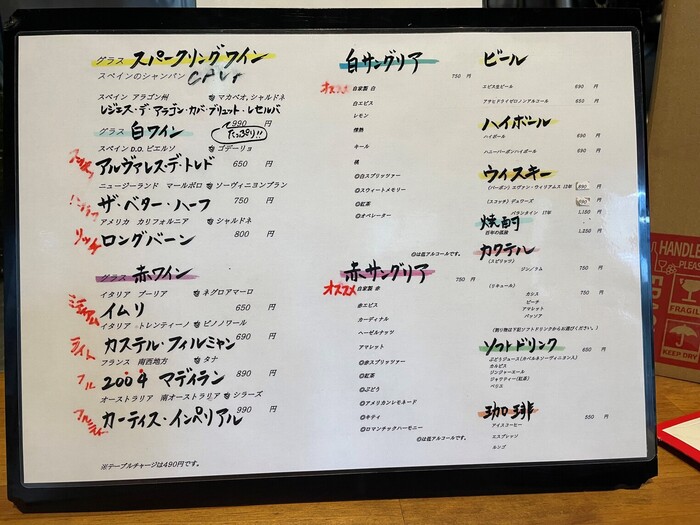 グラス スパークリングワイン
スペインのシャンパン CAVA
スペイン アラゴン州 マカベオ,シャルドネ
レジェス・デ・アラゴン・カバ・ブリュット・レセルバ
990 円
たっぷり!!
グラス 白ワイン
スペイン D.O. ビエルソ ゴデーリョ
アルヴァレス・デ・トレド 650 円
ニュージーランド マールボロ ソーヴィニヨンブラン
ザ・ベター・ハーフ 750 円
アメリカ カリフォルニア シャルドネ
リッチ ロングバーン 800 円
グラス 赤ワイン
イタリア プーリア ネグロアマーロ
ミディアム イムリ 650 円
イタリア・トレンティーノ ピノノワール
ライト カステル・フィルミャン 690 円
フランス 南西地方 タナ
フル 2004 マディラン 890 円
オーストラリア 南オーストラリア シラーズ
フルボディ カーティス・インペリアル 990 円
※テーブルチャージは490円です。
白サングリア 750 円
オススメ 自家製 白
白エビス
レモン
情熱
キール
桃
◎白スプリッツァー
◎スウィートメモリー
◎紅茶
◎オペレーター
◎は低アルコールです。
赤サングリア 750 円
オススメ 自家製 赤
赤エビス
カーディナル
ヘーゼルナッツ
アマレット
◎赤スプリッツァー
◎紅茶
◎ぶどう
◎アメリカンレモネード
◎キティ
◎ロマンチックハーモニー
◎は低アルコールです。
ビール
エビス生ビール 690 円
アサヒドライゼロノンアルコール 650 円
ハイボール
ハイボール 690 円
ハニーバーボンハイボール 690 円
ウィスキー
(バーボン) エヴァン・ウィリアムス 12年 890 円
(スコッチ) デュワーズ 890 円
バランタイン 17年 1,150 円
焼酎
百年の孤独 1,250 円
カクテル
(スピリッツ)
ジン/ラム 750 円
(リキュール)
カシス 750 円
ピーチ
アマレット
パッソア
(割り物は下記ソフトドリンクからお選びください。)
ソフトドリンク 650 円
ぶどうジュース(カベルネソーヴィニオン)
カルピス
ジンジャーエール
ジャワティー(紅茶)
ペリエ
珈琲 550 円
アイスコーヒー
エスプレッソ
ルンゴ
HANDLE
PLEASE
FRAGILE
KEEP DRY